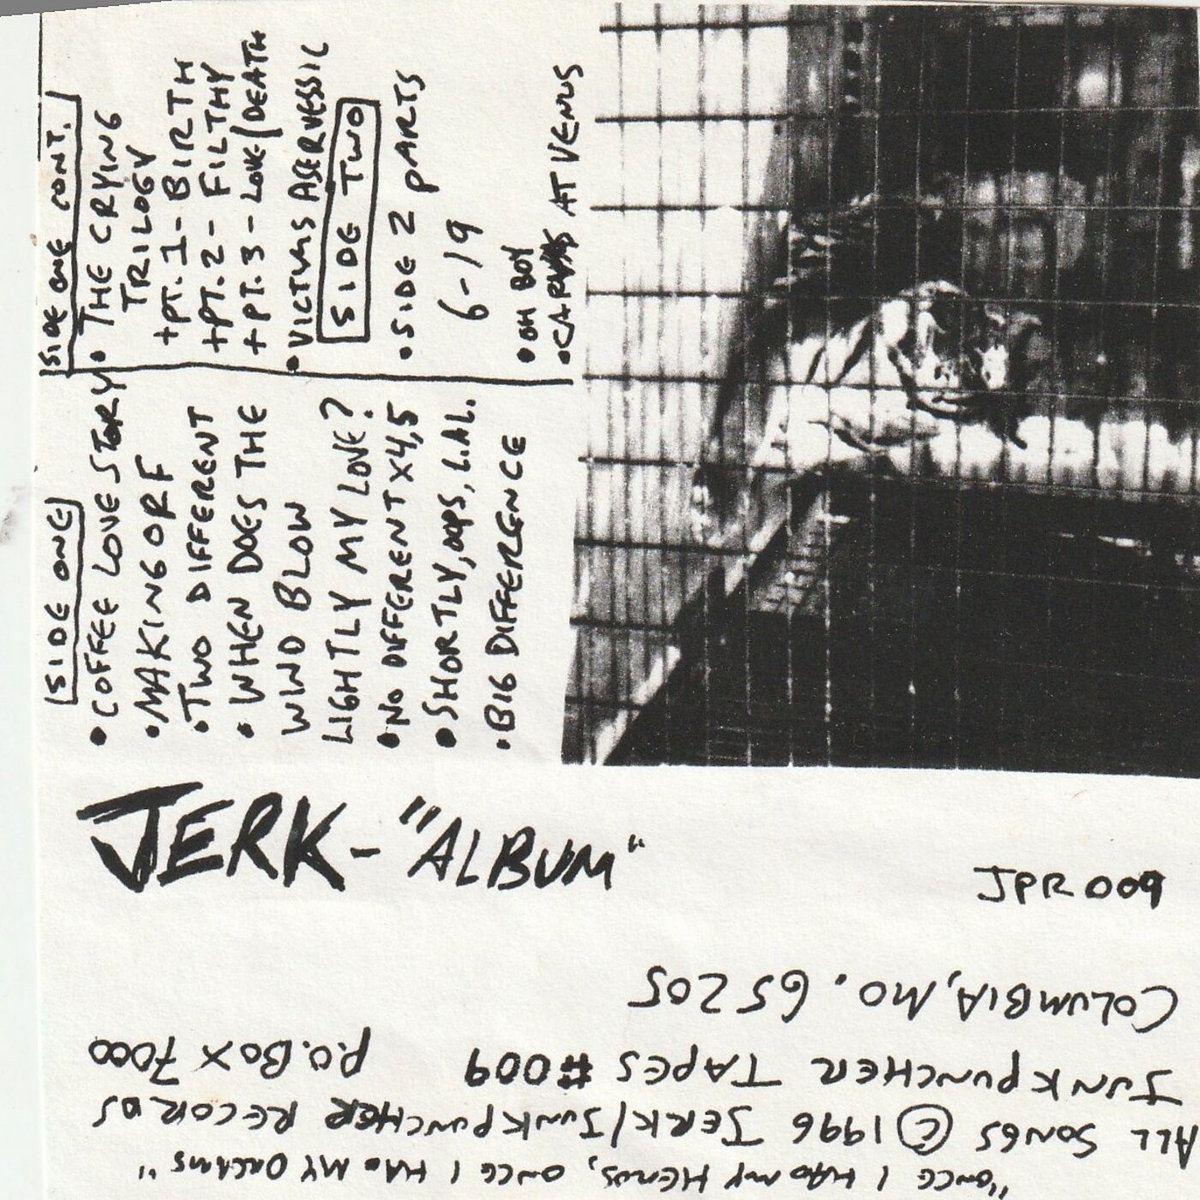 SIDE ONE
• COFFEE LOVE STORY
• MAKING ORF
• TWO DIFFERENT
• WHEN DOES THE
WIND BLOW
LIGHTLY MY LOVE?
• NO DIFFERENT X4,5
• SHORTLY, OOPS, L.A.L.
• BIG DIFFERENCE
SIDE ONE CONT.
• THE CRYING
TRILOGY
+PT. 1 - BIRTH
+PT. 2 - FILTHY
+PT. 3 - LOVE/DEATH
• VICTIMS
SIDE TWO
• SIDE 2 PARTS
6-19
• OH BOY
AT VENUS
JERK - "ALBUM"
JPR009
"ONCE I HAD MY, ONCE I HAD MY DREAMS"
ALL SONGS © 1996 JERK/JUNKPUNCHER RECORDS
JUNKPUNCHER TAPES #009 P.O. BOX 7000
COLUMBIA, MO. 65205